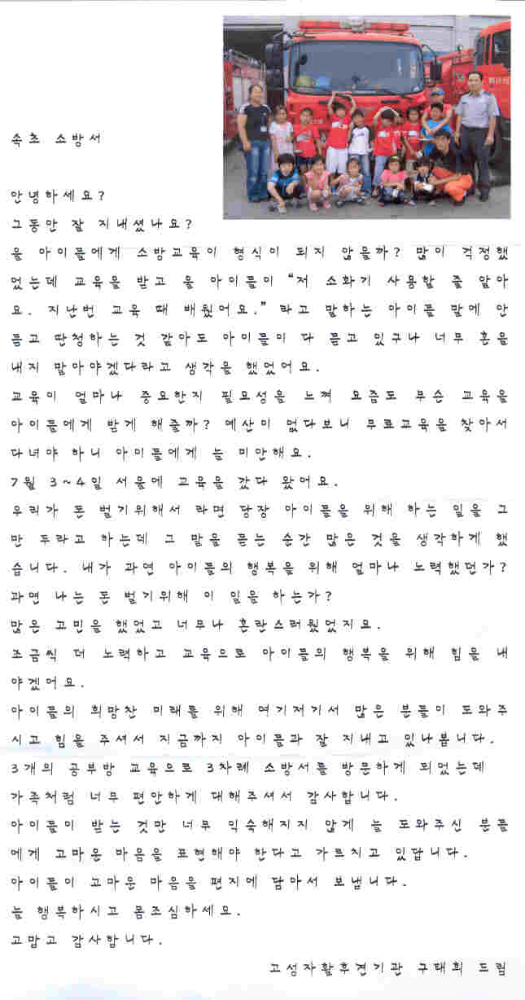 속초 소방서
안녕하세요?
그동안 잘 지내셨나요?
울 아이들에게 소방교육이 형식이 되지 않을까? 많이 걱정했
었는데 교육을 받고 울 아이들이 "저 소화기 사용할 줄 알아
요. 지난번 교육 때 배웠어요." 라고 말하는 아이들 말에 안
듣고 딴청하는 것 같아도 아이들이 다 듣고 있구나 너무 혼을
내지 말아야겠다라고 생각을 했었어요.
교육이 얼마나 중요한지 필요성을 느껴 요즘도 무슨 교육을
아이들에게 받게 해줄까? 예산이 없다보니 무료교육을 찾아서
다녀야 하니 아이들에게 늘 미안해요.
7월 3~4일 서울에 교육을 갔다 왔어요.
우리가 돈 벌기위해서 라면 당장 아이들을 위해 하는 일을 그
만 두라고 하는데 그 말을 듣는 순간 많은 것을 생각하게 했
습니다. 내가 과연 아이들의 행복을 위해 얼마나 노력했던가?
과연 나는 돈 벌기위해 이 일을 하는가?
많은 고민을 했었고 너무나 혼란스러웠었지요.
조금씩 더 노력하고 교육으로 아이들의 행복을 위해 힘을 내
야겠어요.
아이들의 희망찬 미래를 위해 여기저기서 많은 분들이 도와주
시고 힘을 주셔서 지금까지 아이들과 잘 지내고 있나봅니다.
3개의 공부방 교육으로 3차례 소방서를 방문하게 되었는데
가족처럼 너무 편안하게 대해주셔서 감사합니다.
아이들이 받는 것만 너무 익숙해지지 않게 늘 도와주신 분들
에게 고마운 마음을 표현해야 한다고 가르치고 있답니다.
아이들이 고마운 마음을 편지에 담아서 보냅니다.
늘 행복하시고 몸조심하세요.
고맙고 감사합니다.
고성자활후견기관 구태희 드림